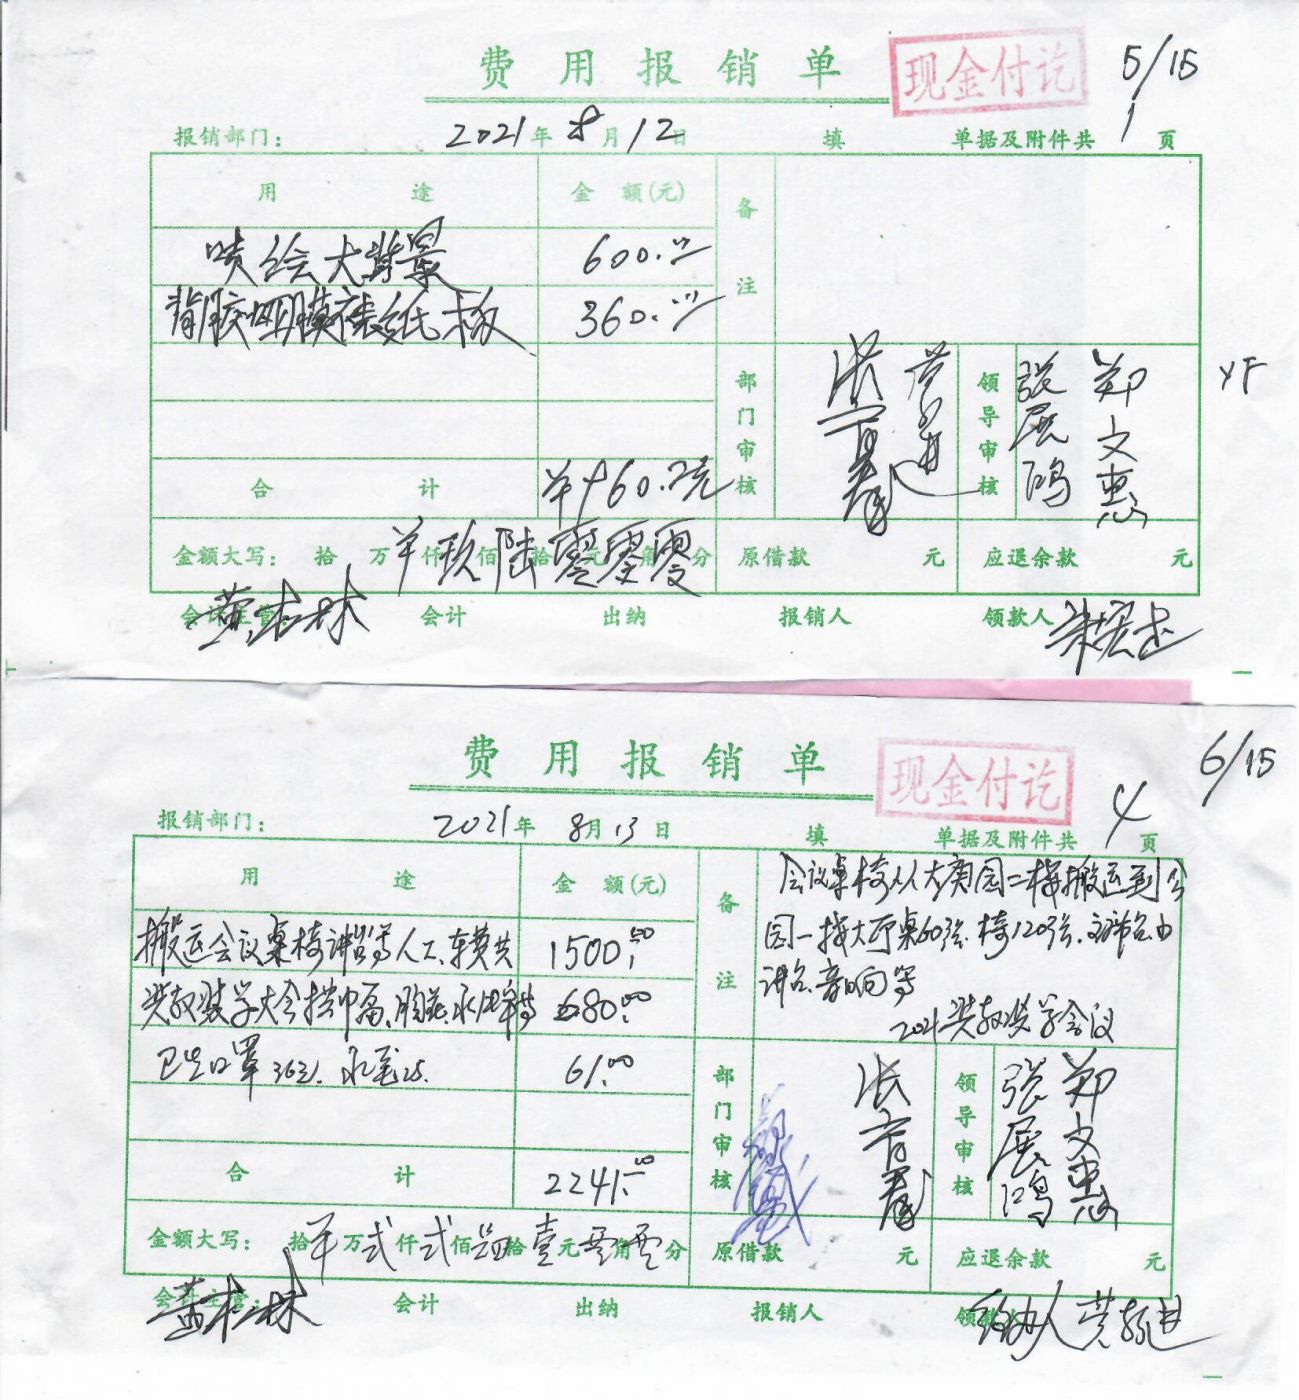 费用报销单 现金付讫 5/15
报销部门： 2021年8月12日 填 单据及附件共1页
用途 金额(元) 备注
喷绘大背景 600.00
背胶哑膜裱纸板 360.00
部门审核 领导审核 张展鸿 郑文惠 YF
合计 ¥960.元
金额大写： 拾万¥仟玖佰陆拾零元零角零分 原借款 元 应退余款 元
会计主管 会计 出纳 报销人 领款人
费用报销单 现金付讫 6/15
报销部门： 2021年8月13日 填 单据及附件共4页
用途 金额(元) 备注 会议桌椅从大 园二楼搬运到公
搬运会议桌椅讲台等人工、车费共 1500.00 园一楼大厅桌60张、椅120张、
奖教奖学大会 680.00 讲台、音响等
2021奖教奖学会议
卫生口罩36元、 25. 61.00
部门审核 领导审核 张展鸿 郑文惠
合计 2241.00
金额大写： 拾¥万弍仟弍佰肆拾壹元零角零分 原借款 元 应退余款 元
会计主管： 会计 出纳 报销人 领款人 经办人